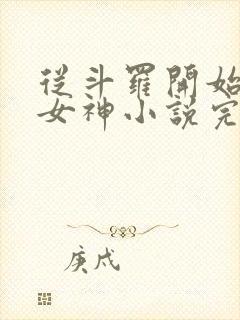 從斗羅開始
女神小説完
庚戌